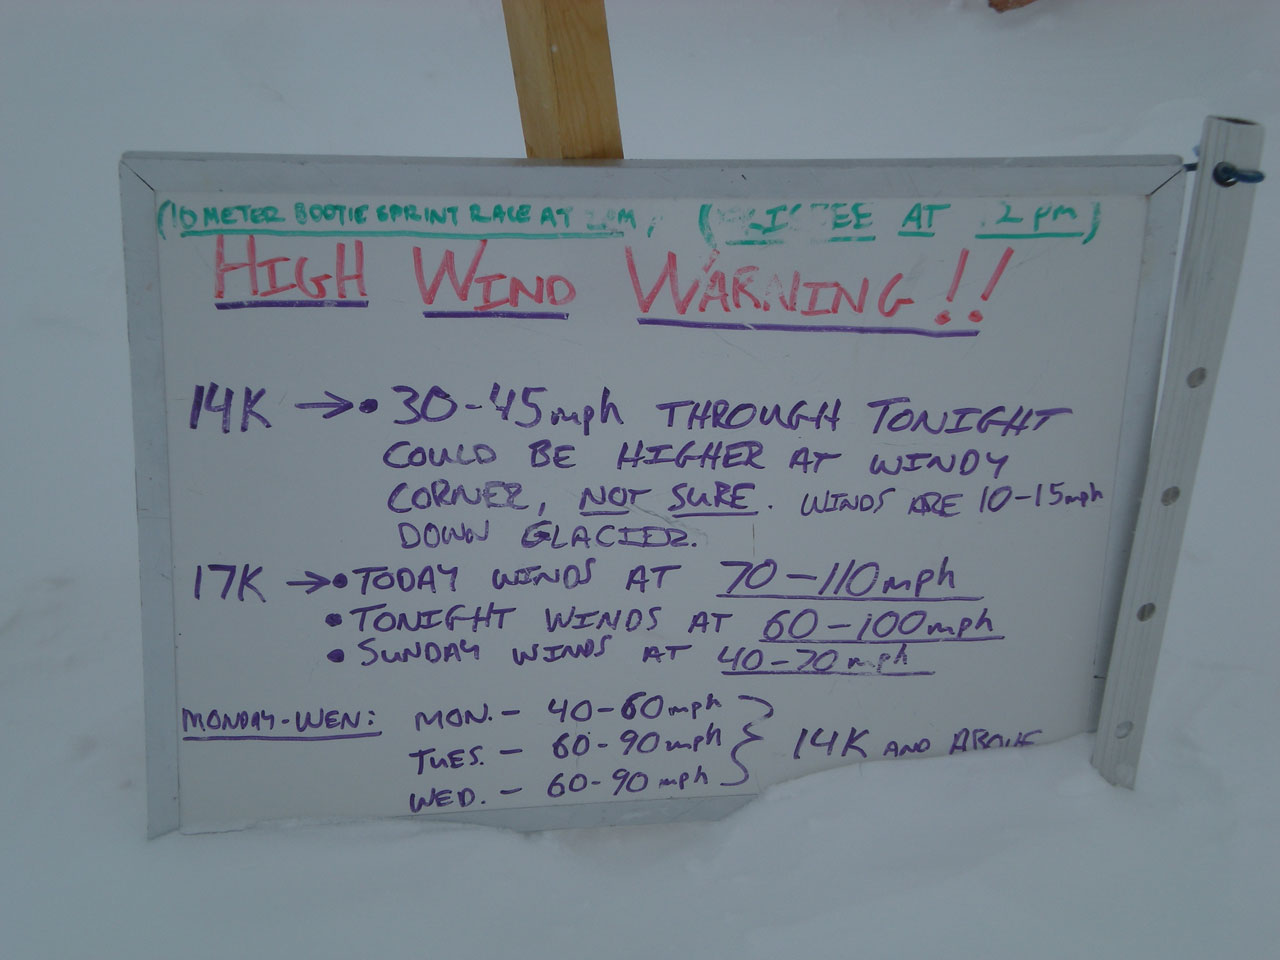 (10 METER BOOTIE SPRINT RACE AT PM, ( AT 2 pm)
HIGH WIND WARNING!!
14K → • 30-45mph THROUGH TONIGHT
COULD BE HIGHER AT WINDY
CORNER, NOT SURE. WINDS ARE 10-15mph
DOWN GLACIER.
17K → • TODAY WINDS AT 70-110mph
• TONIGHT WINDS AT 60-100mph
• SUNDAY WINDS AT 40-70mph
MONDAY-WEN: MON. - 40-60mph
TUES. - 60-90mph } 14K AND ABOVE
WED. - 60-90mph